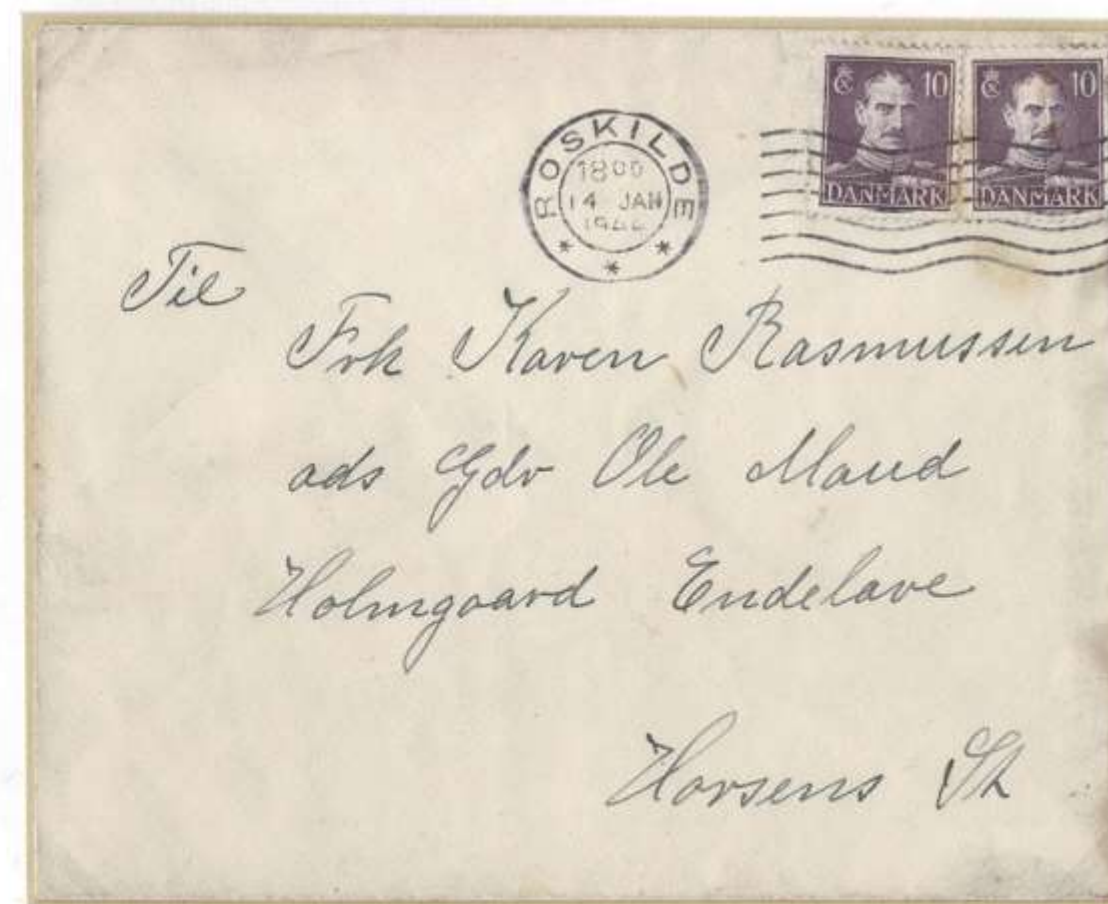 10 10
DANMARK DANMARK
ROSKILDE
18 00
14 JAN
1944
Til
Frk Karen Rasmussen
ads Gdr Ole Maud
Holmgaard Endelave
Horsens St